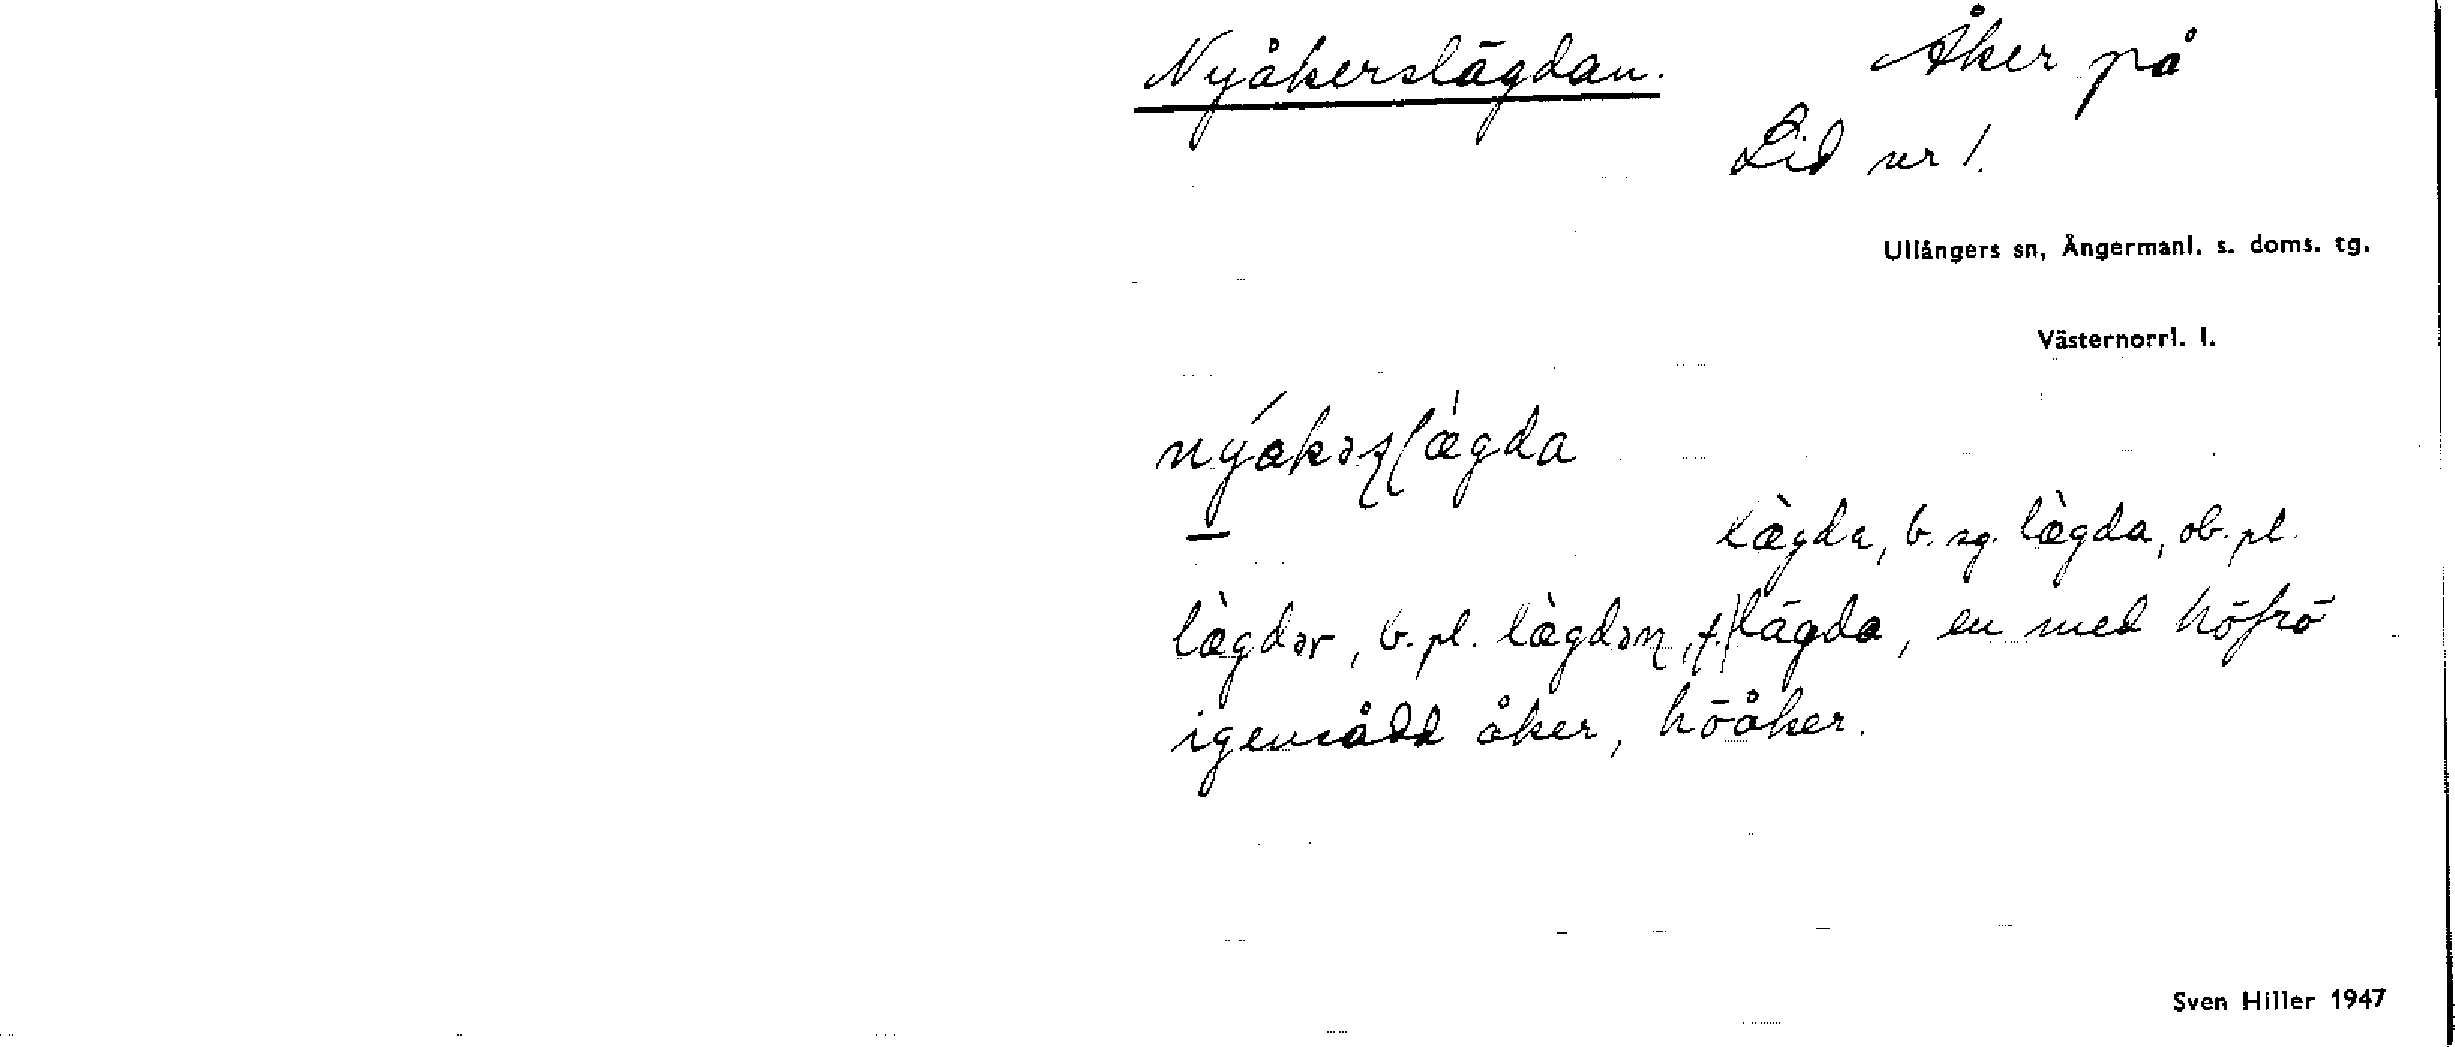 Nyåkerslägdan. Åker på
Lid nr 1.
Ullångers sn, Ångermanl. s. doms. tg.
Västernorrl. l.
nýakəʂɭæ̀gda
lægda, b. sg. lægda, ob. pl.
lægdər, b. pl. lægdəɳ, f.) lägda, en med höfrö
igensådd åker, höåker.
Sven Hiller 1947